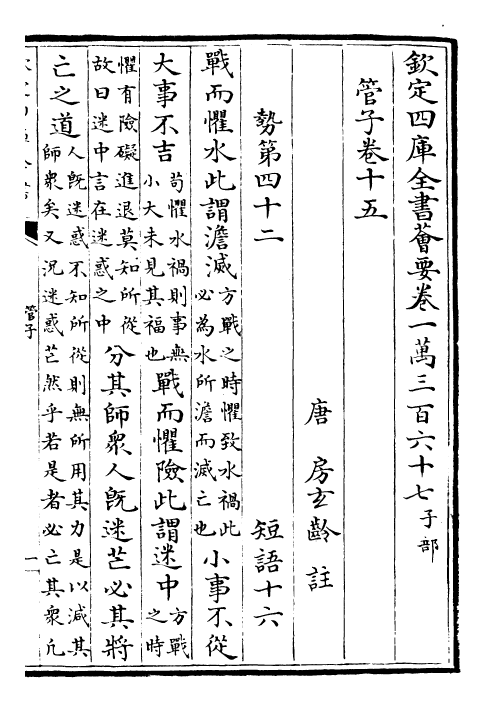 欽定四庫全書薈要卷一萬三百六十七 子部
管子卷十五
唐 房玄齡 註
勢第四十二 短語十六
戰而懼水此謂澹滅 方戰之時懼致水禍此必為水所澹而滅亡也 小事不從
大事不吉 苟懼水禍則事無小大未見其福也 戰而懼險此謂迷中 方戰之時
懼有險礙進退莫知所從故曰迷中言在迷惑之中 分其師衆人既迷芒必其將
亡之道 人既迷惑不知所從則無所用其力是以減其師衆矣又況迷惑芒然乎若是者必亡其衆凡
管子
一